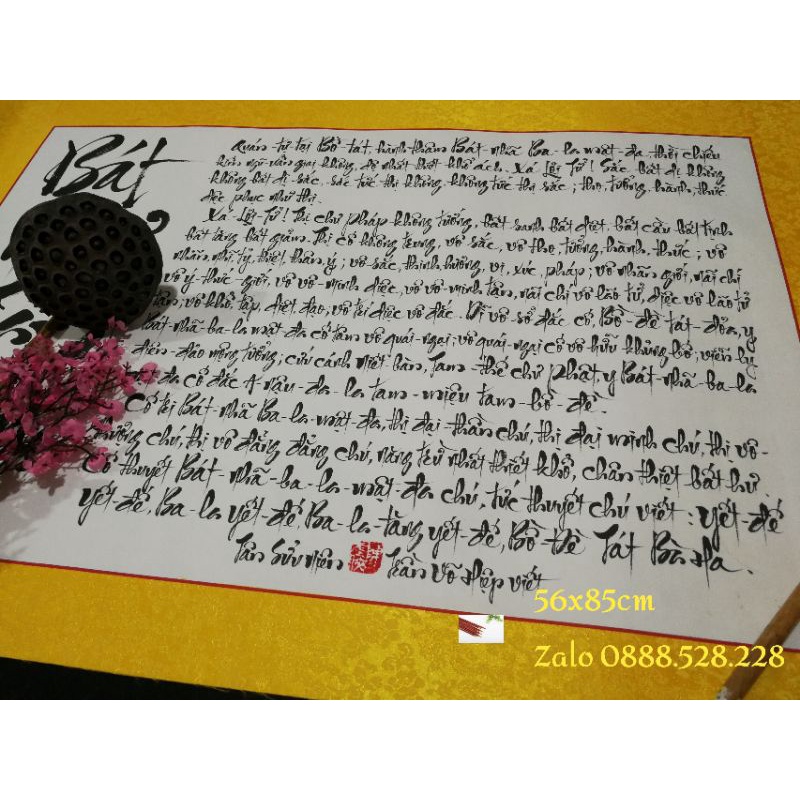 Bát
Quán tự tại Bồ tát, hành thâm Bát nhã Ba-la mật-đa thời chiếu
kiến ngũ uẩn giai không, độ nhất thiết khổ ách. Xá Lợi Tử! Sắc bất dị không
không bất dị sắc, sắc tức thị không, không tức thị sắc; thọ, tưởng, hành, thức
diệc phục như thị.
Xá Lợi Tử! Thị chư pháp không tướng, bất sanh bất diệt, bất cấu bất tịnh
bất tăng bất giảm. Thị cố không trung, vô sắc, vô thọ, tưởng, hành, thức; vô
nhãn, nhĩ, tỷ, thiệt, thân, ý; vô sắc, thinh, hương, vị, xúc, pháp; vô nhãn giới, nãi chí
vô ý-thức-giới, vô vô-minh diệc, vô vô-minh tận, nãi chí vô lão tử, diệc vô lão tử
tận; vô khổ, tập, diệt, đạo, vô trí diệc vô đắc. Dĩ vô sở đắc cố, Bồ-đề tát-đỏa, y
Bát-nhã-ba-la mật đa cố tâm vô quái-ngại; vô quái-ngại cố vô hữu khủng bố; viễn ly
điên-đảo mộng tưởng; cứu cánh niết bàn, Tam-thế chư Phật, y Bát-nhã-ba-la
đa cố đắc A-nậu-đa-la tam-miệu tam-bồ-đề.
Cố tri Bát-nhã Ba-la-mật-đa, thị đại-thần chú, thị đại minh chú, thị vô-
thượng chú, thị vô đẳng đẳng chú, năng trừ nhất thiết khổ, chân thiệt bất hư.
Cố thuyết Bát-nhã-ba-la-mật-đa chú, tức thuyết chú viết: yết-đế
yết-đế, Ba-la yết-đế, Ba-la-tăng yết-đế, Bồ-đề Tát Bà Ha.
Tân Sửu niên Trần Võ Hiệp viết
56x85cm
Zalo 0888.528.228